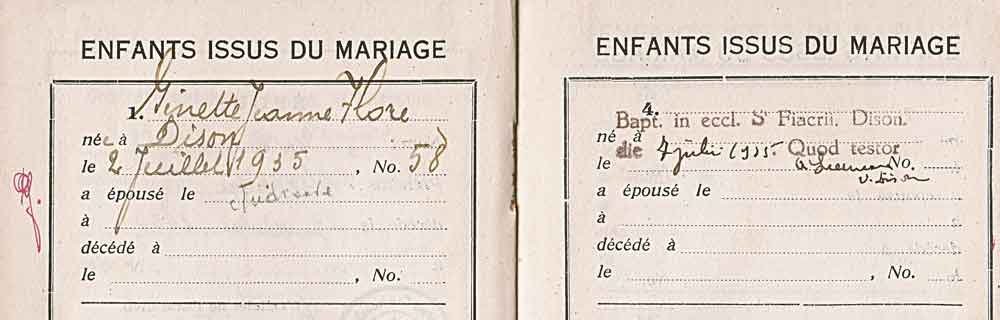 ENFANTS ISSUS DU MARIAGE
1. Ginette Jeanne Flore
née à Dison
le 2 Juillet 1935, No. 58
a épousé le
à
décédé à
le , No.
ENFANTS ISSUS DU MARIAGE
4.
Bapt. in eccl. St Fiacrii. Dison.
né à
die 7 julii 1935. Quod testor
le No.
v. Dison
a épousé le
à
décédé à
le , No.